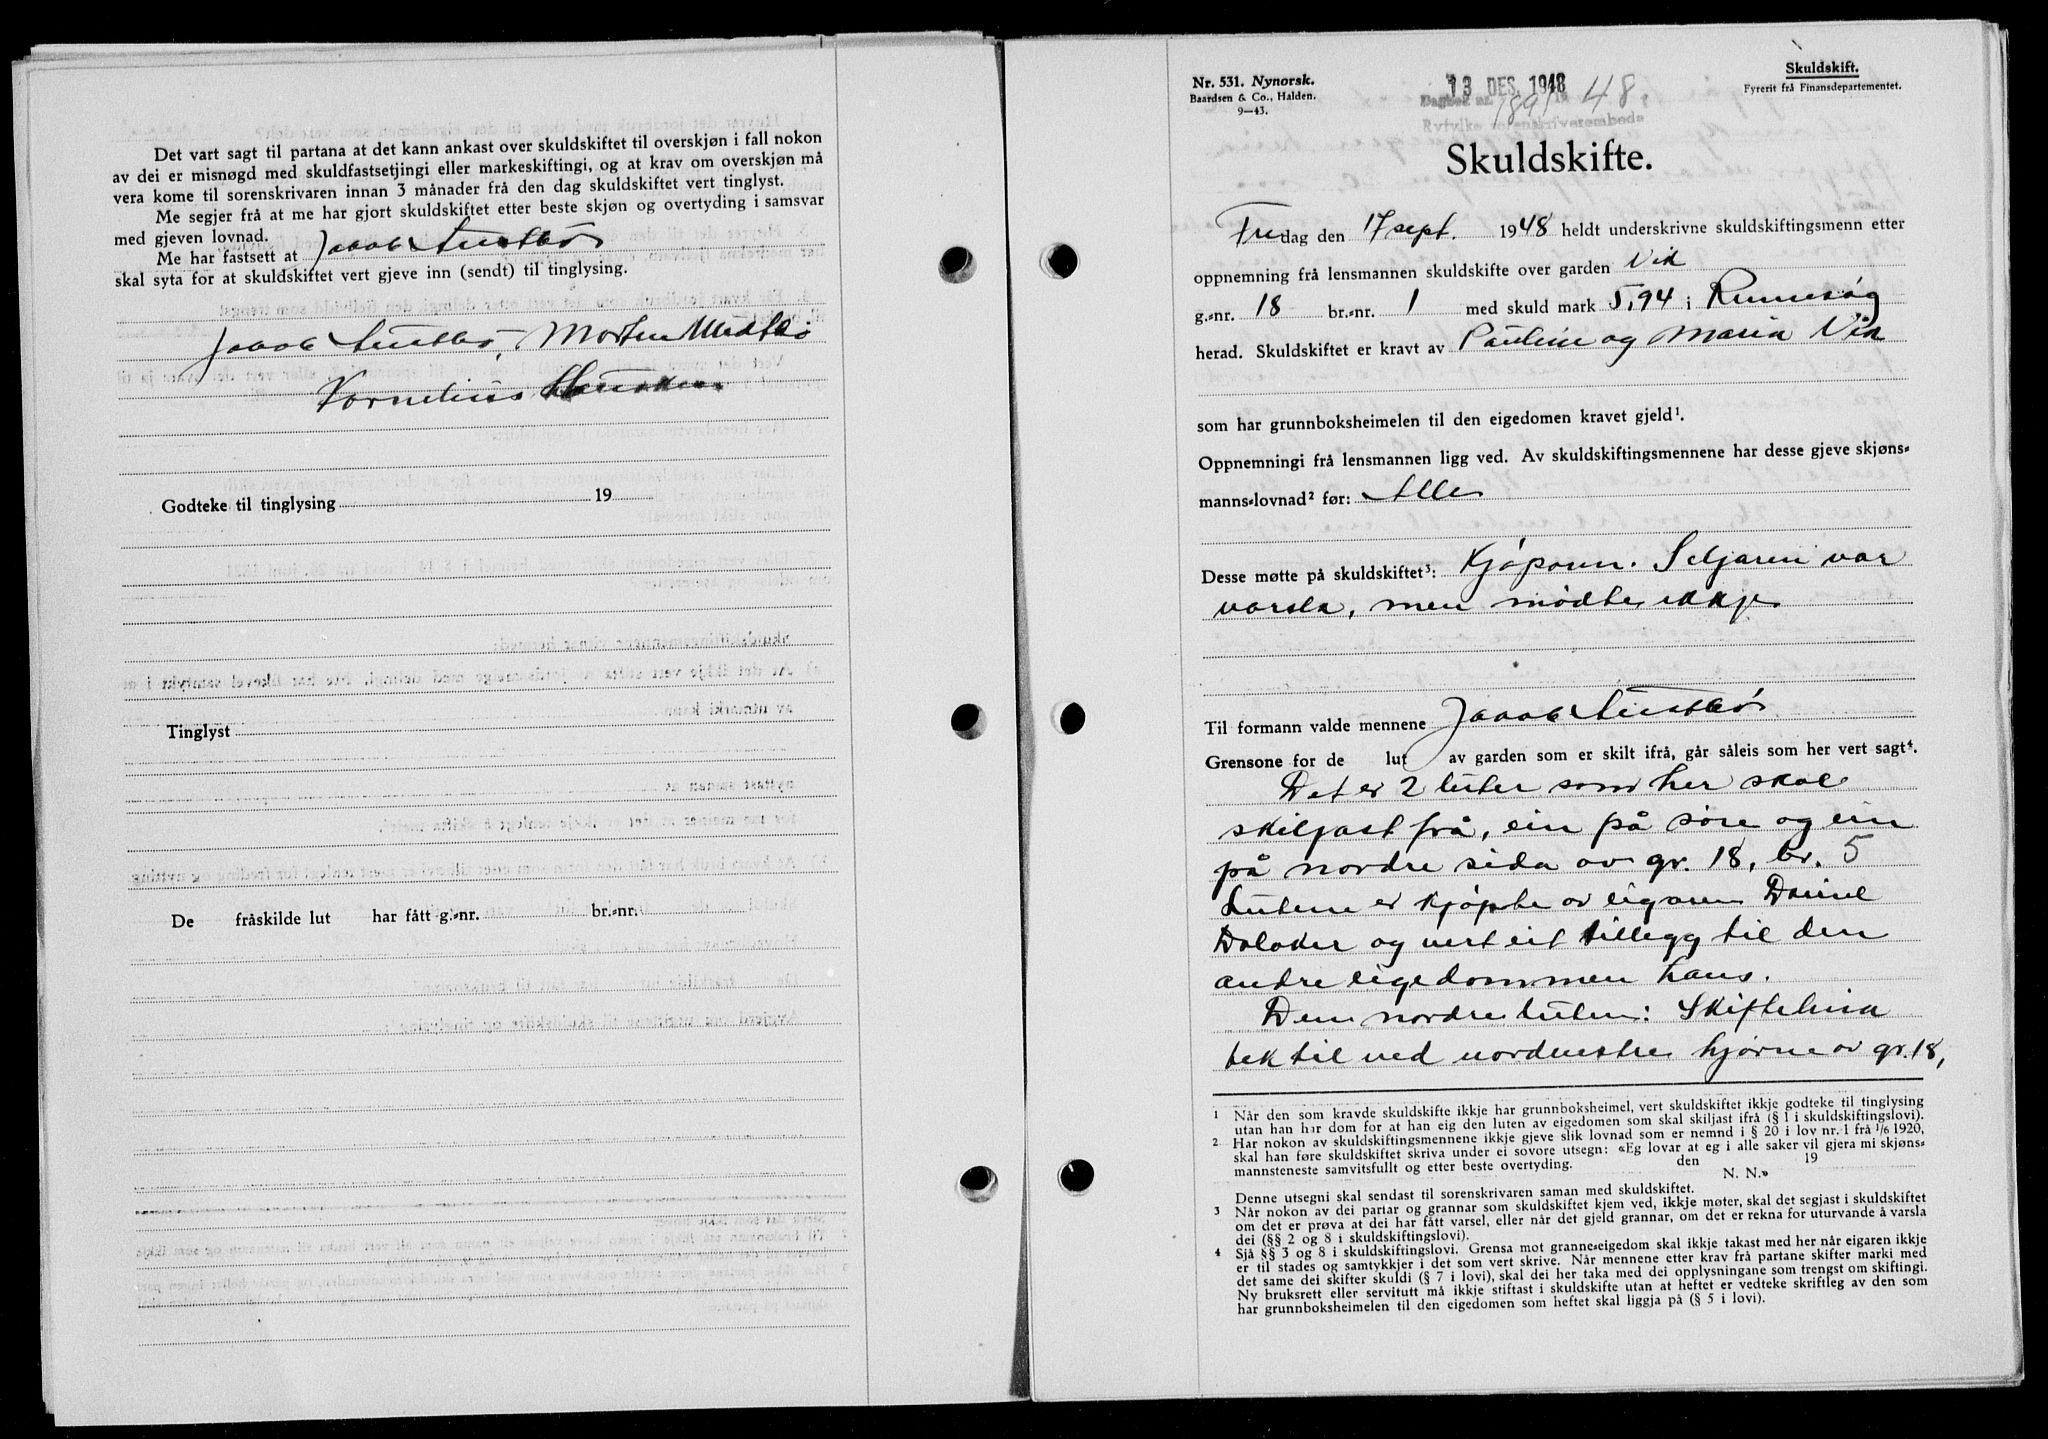 Det vart sagt til partana at det kann ankast over skuldskiftet til overskjøn i fall nokon
av dei er misnøgd med skuldfastsetjingi eller markeskiftingi, og at krav om overskjøn må
vera kome til sorenskrivaren innan 3 månader frå den dag skuldskiftet vert tinglyst.
Me segjer frå at me har gjort skuldskiftet etter beste skjøn og overtyding i samsvar
med gjeven lovnad.
Me har fastsett at Jacob Austbø
skal syta for at skuldskiftet vert gjeve inn (sendt) til tinglysing.
Jacob Austbø, Morten Meltbø
Kornelius Hausken
Godteke til tinglysing 19
Tinglyst
De fråskilde lut har fått g.-nr. br.-nr.
Nr. 531. Nynorsk.
Baardsen & Co., Halden.
9—43.
13 DES. 1948
Dagbok nr. 1891 19 48.
Ryfylke sorenskrivarembede
Skuldskift.
Fyrerit frå Finansdepartementet.
Skuldskifte.
Fredag den 17 sept. 1948 heldt underskrivne skuldskiftingsmenn etter
oppnemning frå lensmannen skuldskifte over garden Vik
g.-nr. 18 br.-nr. 1 med skuld mark 5,94 i Rennesøy
herad. Skuldskiftet er kravt av Pauline og Maria Vik
som har grunnboksheimelen til den eigedomen kravet gjeld¹.
Oppnemningi frå lensmannen ligg ved. Av skuldskiftingsmennene har desse gjeve skjøns-
manns-lovnad² før: Alle
Desse møtte på skuldskiftet³: Kjøparen. Seljaren var
varsla, men mødte ikkje
Til formann valde mennene Jacob Austbø
Grensone for de lut av garden som er skilt ifrå, går såleis som her vert sagt⁴.
Det er 2 luter som her skal
skiljast frå, ein på søre og ein
på nordre sida av gr. 18, br. 5
Lutene er kjøpte av eigaren Daniel
Dalaker og vert eit tillegg til den
andre eigedommen hans.
Den nordre luten: Skiftelina
tek til ved nordvestre hjørne av gr. 18,
1 Når den som kravde skuldskifte ikkje har grunnboksheimel, vert skuldskiftet ikkje godteke til tinglysing
utan han har dom for at han eig den luten av eigedomen som skal skiljast ifrå (§ 1 i skuldskiftingslovi).
2 Har nokon av skuldskiftingsmennene ikkje gjeve slik lovnad som er nemnd i § 20 i lov nr. 1 frå 1/6 1920,
skal han føre skuldskiftet skriva under ei sovore utsegn: «Eg lovar at eg i alle saker vil gjera mi skjøns-
mannsteneste samvitsfullt og etter beste overtyding. den 19
N. N.»
Denne utsegni skal sendast til sorenskrivaren saman med skuldskiftet.
3 Når nokon av dei partar og grannar som skuldskiftet kjem ved, ikkje møter, skal det segjast i skuldskiftet
om det er prøva at dei har fått varsel, eller når det gjeld grannar, om det er rekna for uturvande å varsla
dei (§§ 2 og 8 i skuldskiftingslovi).
4 Sjå §§ 3 og 8 i skuldskiftingslovi. Grensa mot granne-eigedom skal ikkje takast med her når eigaren ikkje
er til stades og samtykkjer i det som vert skrive. Når mennene etter krav frå partane skifter marki med
det same dei skifter skuldi (§ 7 i lovi), skal dei her taka med dei opplysningane som trengst om skiftingi.
Ny bruksrett eller servitutt må ikkje stiftast i skuldskifte utan at heftet er vedteke skriftleg av den som
har grunnboksheimelen til den eigedomen som heftet skal liggja på (§ 5 i lovi).